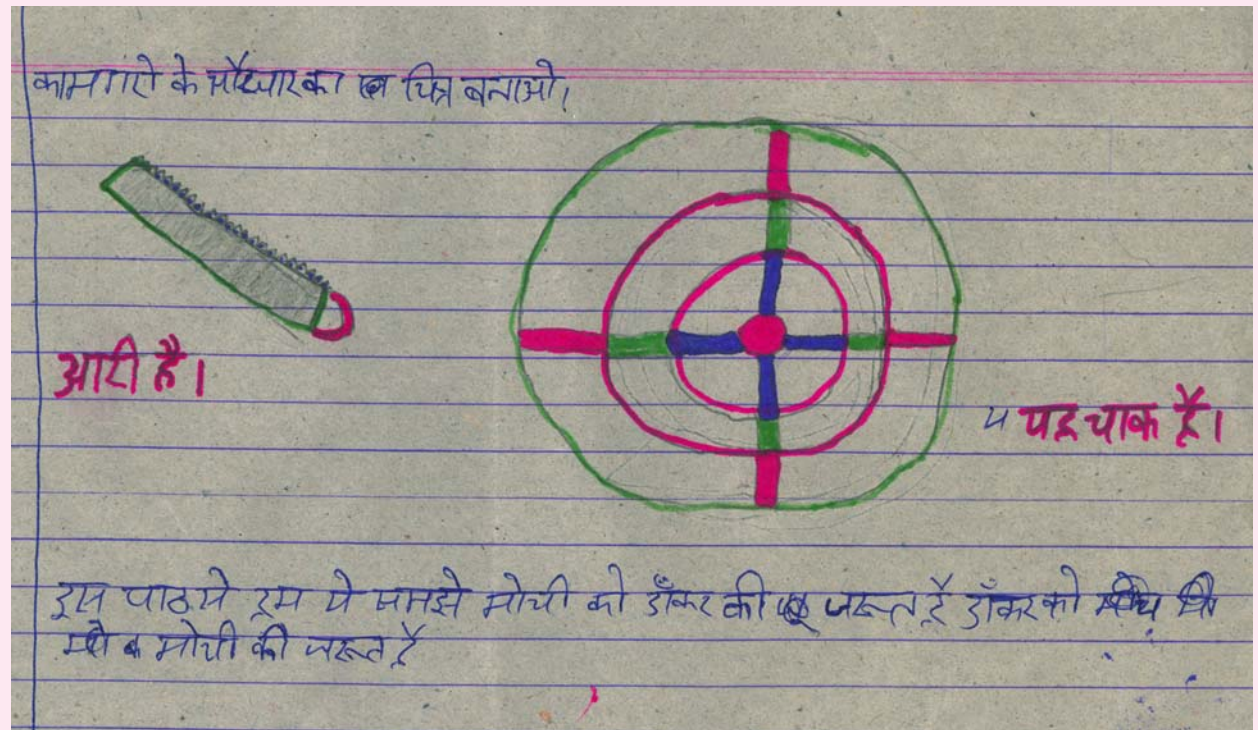 कामगारो के औजार का चित्र बनाओ।
आरी है।
यह चाक है।
इस पाठ से हम ये समझे मोची को डॉक्टर की जरूत है डॉक्टर को
मोची की जरूत है